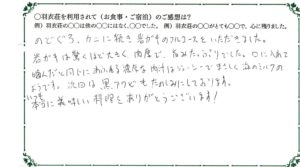 ○羽衣荘を利用されて（お食事・ご宿泊）のご感想は？
例）羽衣荘の○○には他の○○にはなく、○○でした。 例）羽衣荘の○○がとても○○で、心に残りました。
のどぐろ、カニに続き岩ガキのフルコースをいただきました。
岩ガキは驚くほど大きく、肉厚で、旨みたっぷりでした。口に入れて
噛んだと同時にあふれる濃厚な肉汁はジューシーでまさしく海のミルクの
ようです。次回は黒アワビもたのしみにしております。
いつも
本当に美味しい料理をありがとうございます！